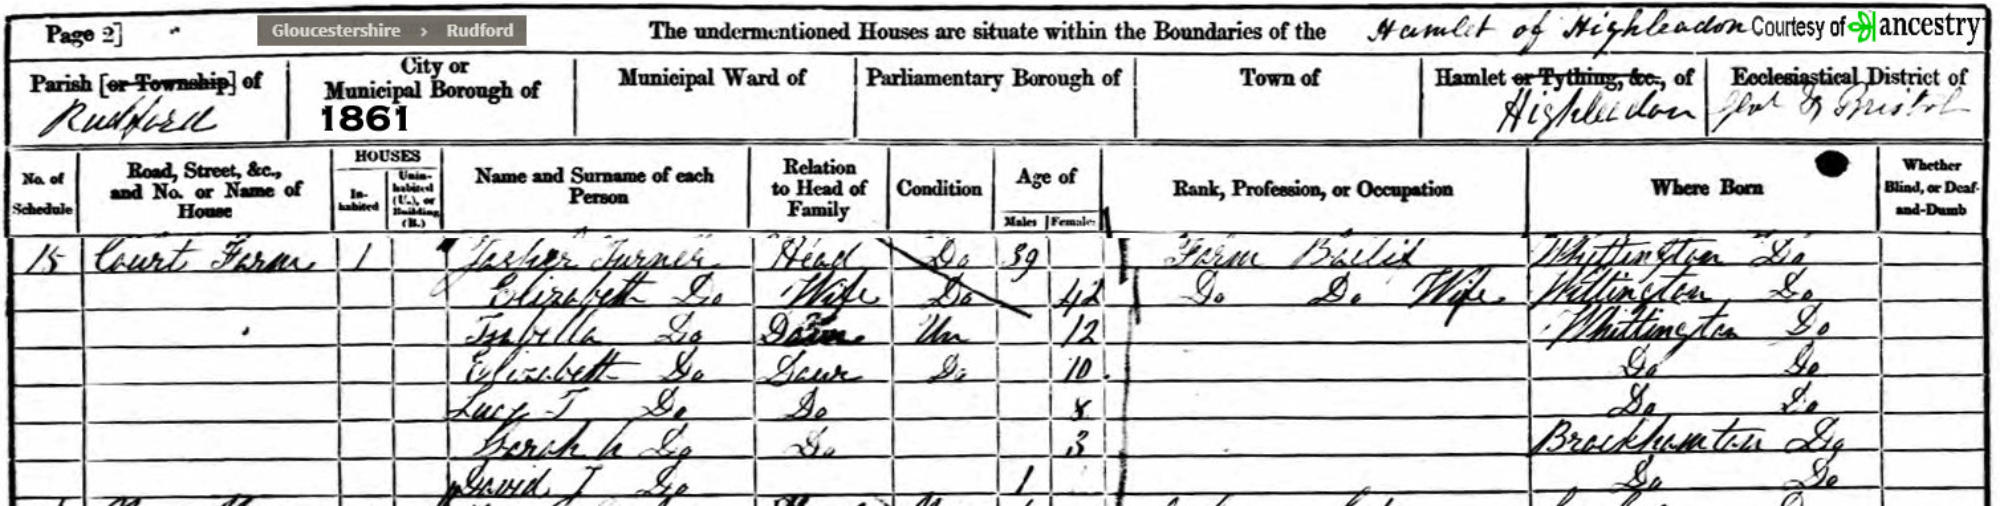 Page 2] Gloucestershire › Rudford The undermentioned Houses are situate within the Boundaries of the Hamlet of Highleadon Courtesy of ancestry
Parish [or Township] of City or Municipal Borough of Municipal Ward of Parliamentary Borough of Town of Hamlet or Tything, &c., of Ecclesiastical District of
Rudford 1861 Highleadon & Bristol
No. of Schedule Road, Street, &c., and No. or Name of House HOUSES In-habited Unin-habited (U.), or Building (B.) Name and Surname of each Person Relation to Head of Family Condition Age of Males Females Rank, Profession, or Occupation Where Born Whether Blind, or Deaf-and-Dumb
15 Court Farm 1 Turner Head Do 39 Farm Bailif Whittington Do
Elizabeth Do Wife Do 42 Do Do Wife Wittington Do
Isabella Do Daur Un 12 Whittington Do
Elizabeth Do Daur Do 10 Do Do
Lucy T Do Do 8 Do Do
Sarah A Do Do 3 Brockhamton Do
David T Do 1 Do Do